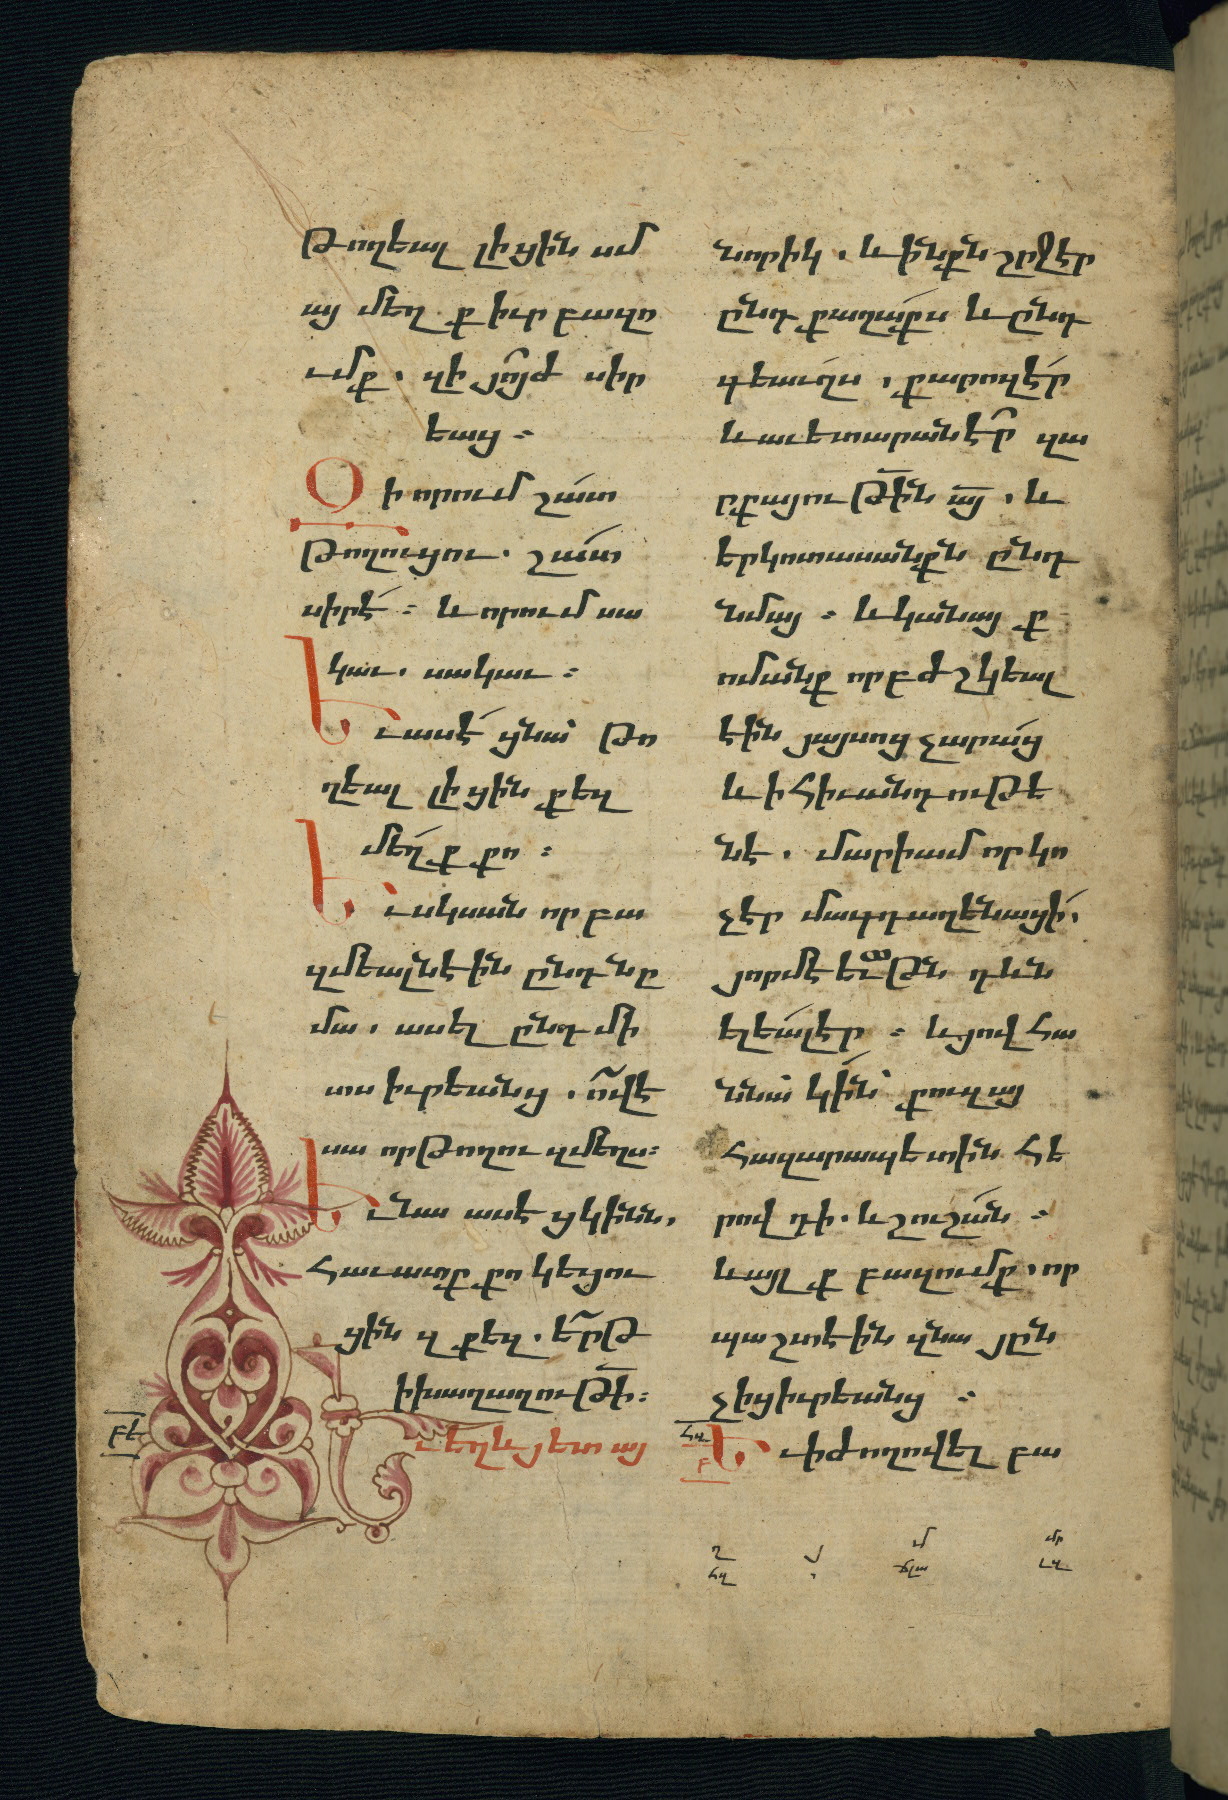 Թողեալ լիցին սմ
այ մեղք իւր բազո
ւմք, զի յոյժ սիր
եաց։
Զի որում շատ
թողուցու. շատ
սիրէ։ և որում սա
կաւ. սակաւ։
Եւ ասէ ցնա թո
ղեալ լիցին քեզ
մեղք քո։
Եւ սկսան որ բա
զմեալն էին ընդ նը
մա. ասել ընդ մի
տս իւրեանց. ո՞վ է
սա որ թողու զմեղս։
Եւ նա ասէ ցկինն,
հաւատք քո կեցու
ցին զքեզ. ե՛րթ
ի խաղաղութի։
Եւ եղև յետ այ
նորիկ. և ինքն շրջէր
ընդ քաղաքս և ընդ
գեաւղս, քարոզէր
և աւետարանէր զա
րքայութին այ. և
երկոտասանքն ընդ
նմայ։ և կանայք
ոմանք որ բժշկեալ
էին յայսոց չարաց
և ի հիւանդութե
նէ. մարիամ որ կո
չէր մագդաղենացի,
յորմէ եւթն դևն
ելեալ էր։ և յովհա
ննա կին քուզայ
հազարապետին հե
րովդի. և շուշան։
և այլք բազումք, որ
պաշտէին զնա յըն
չից իւրեանց։
Եւ ի ժողովել բա